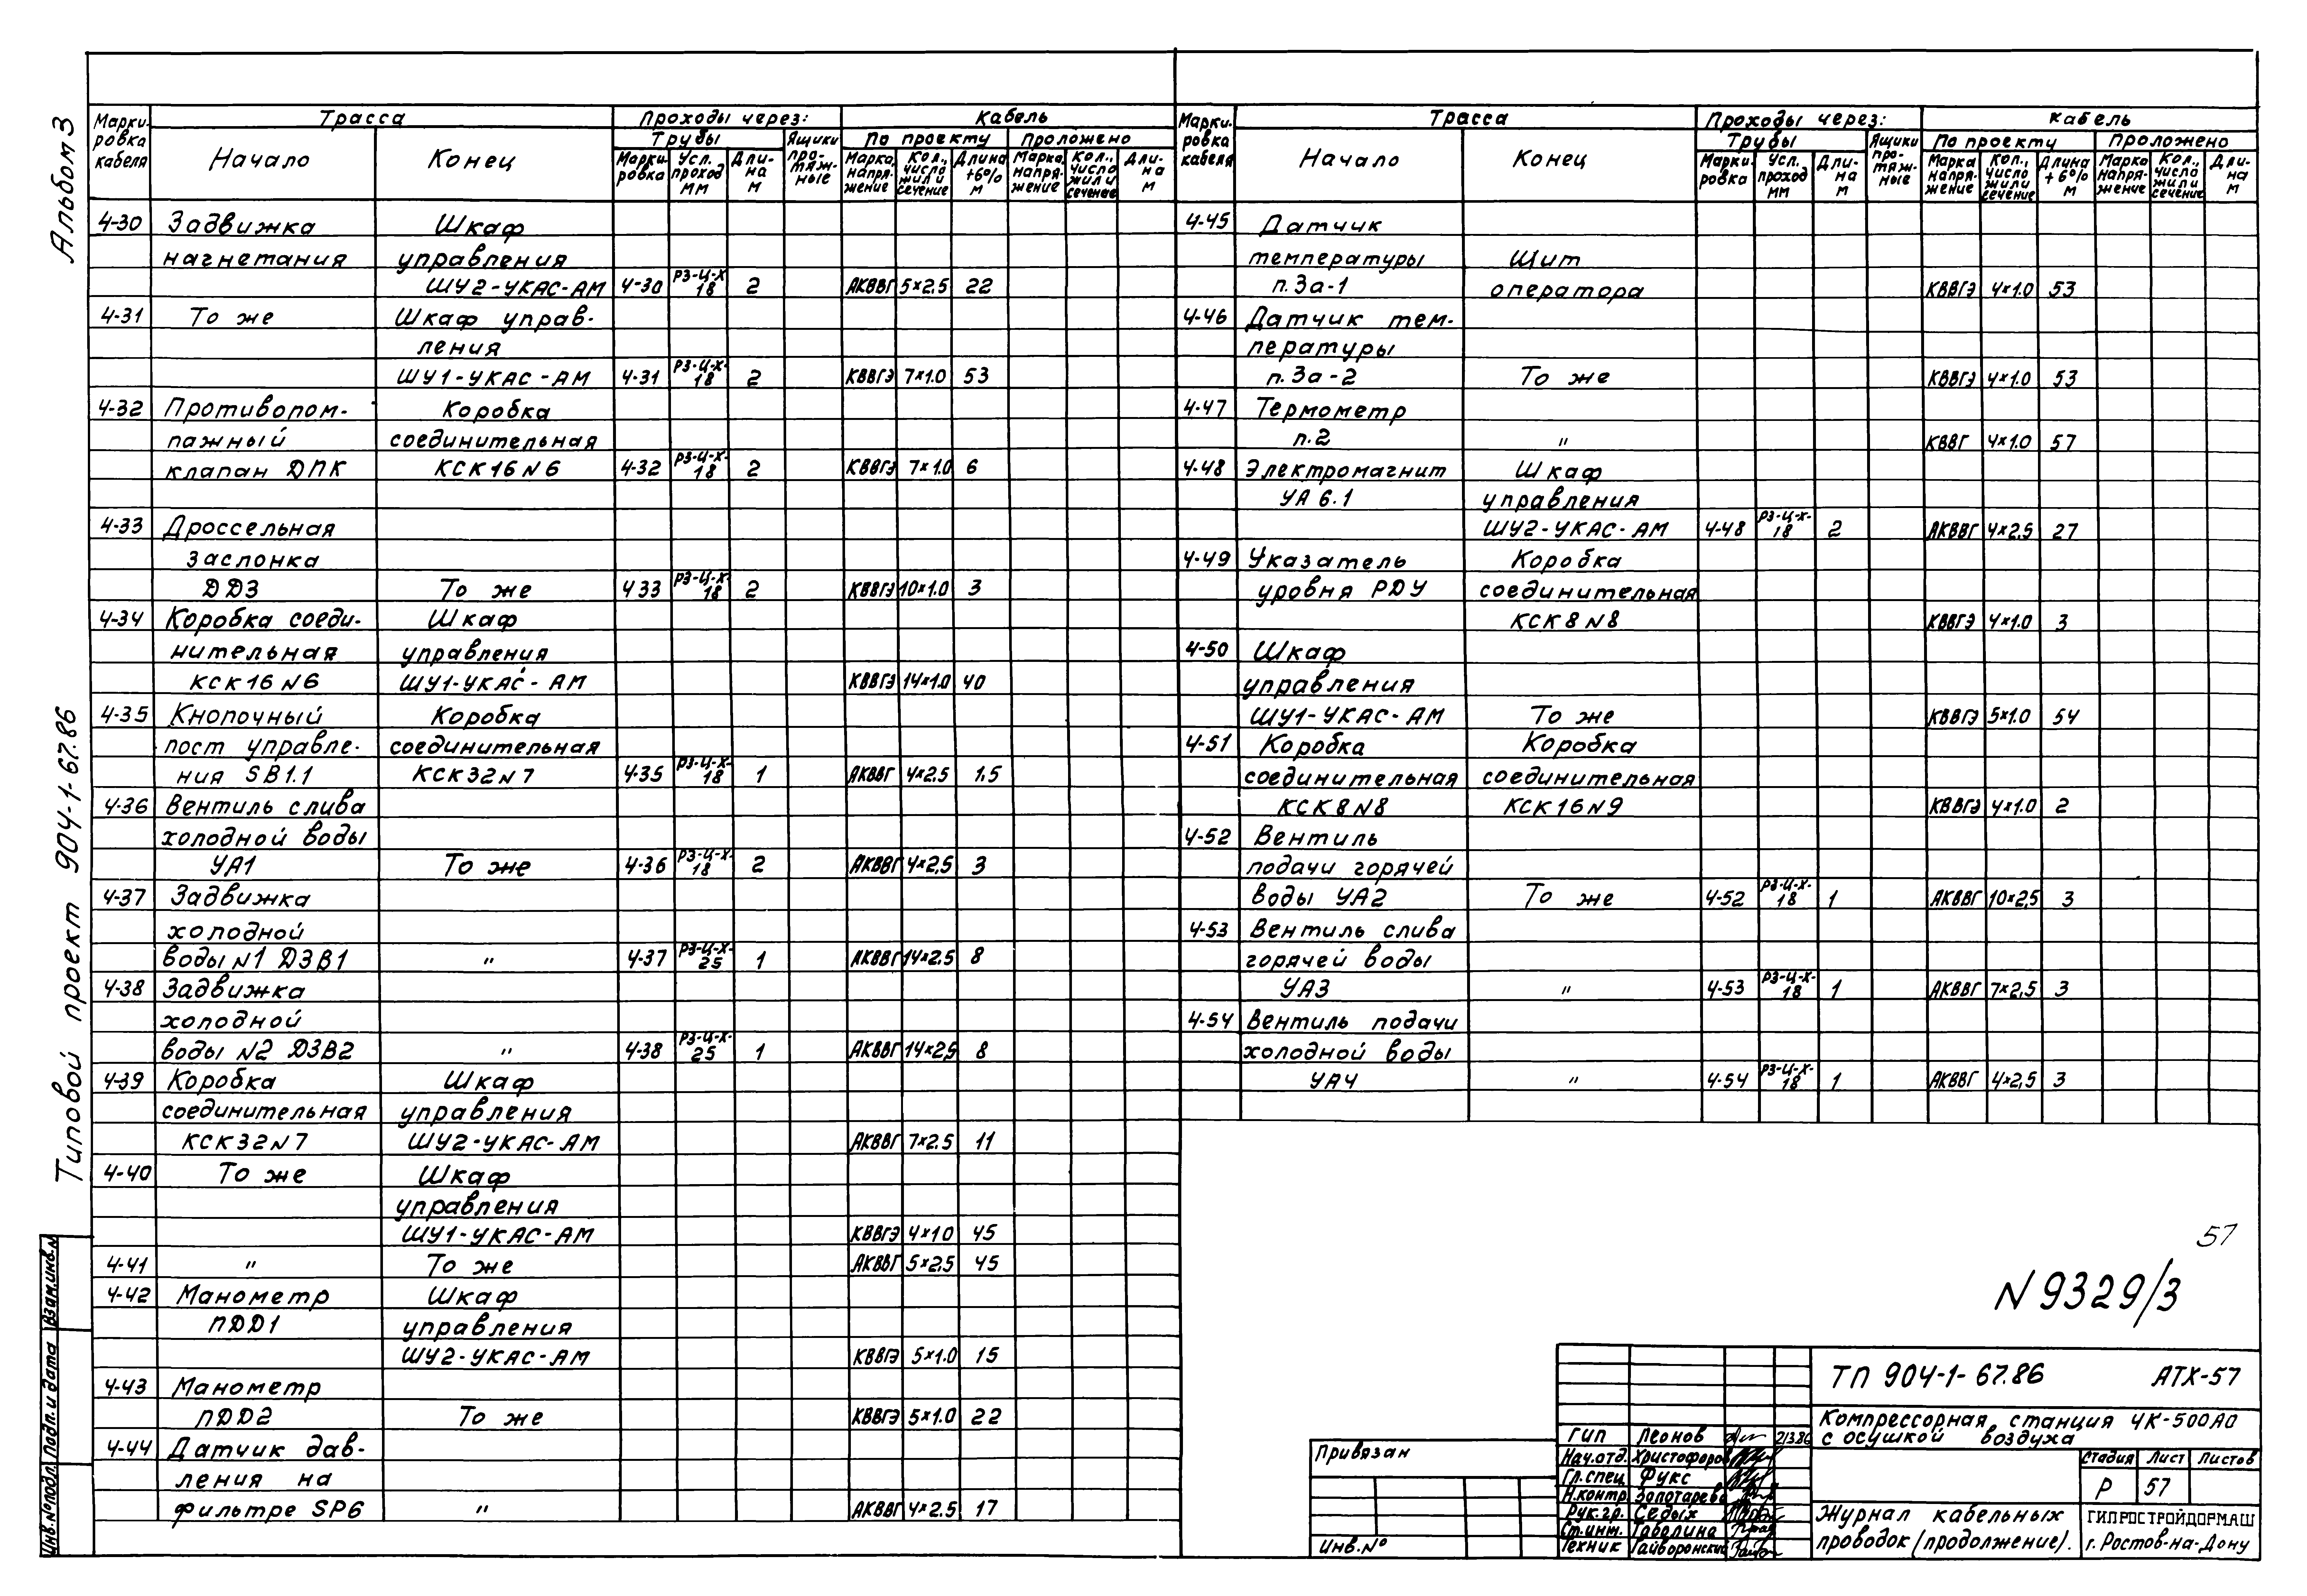 Альбом 3
Типовой проект 904-1-67.86
Взам.инв.N
Подп. и дата
Инв.N°подл.
Марки- ровка кабеля | Трасса | Проходы через: | Кабель
Начало | Конец | Трубы | Ящики про- тяж- ные | По проекту | Проложено
Марки- ровка | Усл. проход мм | Дли- на м | Марка, напря- жение | Кол., число жил и сечение | Длина +6% м | Марка, напря- жение | Кол., число жил и сечение | Дли- на м
4-30 Задвижка Шкаф
нагнетания управления
ШУ2-УКАС-АМ 4-30 РЗ-Ц-Х 18 2 АКВВГ 5×2,5 22
4-31 То же Шкаф управ-
ления
ШУ1-УКАС-АМ 4-31 РЗ-Ц-Х- 18 2 КВВГЭ 7×1.0 53
4-32 Противопом- Коробка
пажный соединительная
клапан ДПК КСК16N6 4-32 РЗ-Ц-Х- 18 2 КВВГЭ 7×1.0 6
4-33 Дроссельная
заслонка
ДДЗ То же 4 33 РЗ-Ц-Х- 18 2 КВВГЭ 10×1.0 3
4-34 Коробка соеди- Шкаф
нительная управления
КСК16N6 ШУ1-УКАС-АМ КВВГЭ 14×1.0 40
4-35 Кнопочный Коробка
пост управле- соединительная
ния SB1.1 КСК32N7 4-35 РЗ-Ц-Х- 18 1 АКВВГ 4×2.5 1.5
4-36 Вентиль слива
холодной воды
УА1 То же 4-36 РЗ-Ц-Х- 18 2 АКВВГ 4×2,5 3
4-37 Задвижка
холодной
воды N1 ДЗВ1 " 4-37 РЗ-Ц-Х- 25 1 АКВВГ 14×2.5 8
4-38 Задвижка
холодной
воды N2 ДЗВ2 " 4-38 РЗ-Ц-Х- 25 1 АКВВГ 14×2,5 8
4-39 Коробка Шкаф
соединительная управления
КСК32N7 ШУ2-УКАС-АМ АКВВГ 7×2.5 11
4-40 То же Шкаф
управления
ШУ1-УКАС-АМ КВВГЭ 4×10 45
4-41 " То же АКВВГ 5×2,5 45
4-42 Манометр Шкаф
ПДД1 управления
ШУ2-УКАС-АМ КВВГЭ 5×1.0 15
4-43 Манометр
ПДД2 То же КВВГЭ 5×1.0 22
4-44 Датчик дав-
ления на
фильтре SP6 " АКВВГ 4×2.5 17
Марки- ровка кабеля | Трасса | Проходы через: | Кабель
Начало | Конец | Трубы | Ящики про- тяж- ные | По проекту | Проложено
Марки- ровка | Усл. проход мм | Дли- на м | Марка напря- жение | Кол., число жил и сечение | Длина +6% м | Марка напря- жение | Кол., число жил и сечение | Дли- на м
4-45 Датчик
температуры Щит
п.3а-1 оператора КВВГЭ 4×1.0 53
4-46 Датчик тем-
пературы
п.3а-2 То же КВВГЭ 4×1.0 53
4-47 Термометр
п.2 " КВВГ 4×1.0 57
4-48 Электромагнит Шкаф
УА 6.1 управления
ШУ2-УКАС-АМ 4-48 РЗ-Ц-Х- 18 2 АКВВГ 4×2.5 27
4-49 Указатель Коробка
уровня РДУ соединительная
КСК8N8 КВВГЭ 4×1.0 3
4-50 Шкаф
управления
ШУ1-УКАС-АМ То же КВВГЭ 5×1.0 54
4-51 Коробка Коробка
соединительная соединительная
КСК8N8 КСК16N9 КВВГЭ 4×1.0 2
4-52 Вентиль
подачи горячей
воды УА2 То же 4-52 РЗ-Ц-Х- 18 1 АКВВГ 10×2,5 3
4-53 Вентиль слива
горячей воды
УА3 " 4-53 РЗ-Ц-Х- 18 1 АКВВГ 7×2,5 3
4-54 Вентиль подачи
холодной воды
УА4 " 4-54 РЗ-Ц-Х- 18 1 АКВВГ 4×2,5 3
57
N9329/3
Привязан
Инв.N°
ГИП Леонов 21386
Нач.отд. Христофоров
Гл.спец Фукс
Н.контр. Золотарева
Рук.гр. Седых
Ст.инж. Табелина
Техник Гайворонский
ТП 904-1-67.86 АТХ-57
Компрессорная станция ЧК-500АО
с осушкой воздуха
Стадия Лист Листов
Р 57
Журнал кабельных
проводок (продолжение).
ГИПРОСТРОЙДОРМАШ
г. Ростов-на-Дону